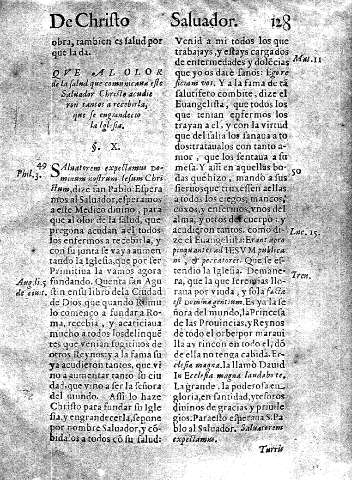 De Christo Saluador. 128
obra, tambien es salud por
que la da.
QVE AL OLOR
de la salud que comunica este
Saluador Christo acudie
ron tantos a recebirla,
que se engrandecio
la Iglesia.
§. X.
49
Phil. 3.
Saluatorem expectamus do-
minum nostrum Iesum Chri
stum, dize san Pablo: Espera
mos al Saluador, esperamos
a este Medico diuino, para
que al olor de la salud, que
pregona acudan a el todos
los enfermos a recebirla, y
con su junta se vaya aumen
tando la Iglesia, que por ser
Primitiua la vamos agora
fundando. Quenta san Agu
stin en su libro de la Ciudad
de Dios, que quando Romu
lo començo a fundar a Roma,
recebia, y acariciaua
mucho a todos los delinquē
tes que venian fugitiuos de
otros Reynos: y a la fama su
ya acudieron tantos, que vi
no a aumentar tanto su ciu
dad, que vino a ser la señora
del mundo. Assi lo haze
Christo para fundar su Igle
sia, y engrandecerla, se pone
por nombre Saluador, y cō
bida los a todos cō su salud:
Venid a mi todos los que
trabajays, y estays cargados
de enfermedades y dolēcias
que yo os daré sanos: Ego re
ficiam vos. Y a la fama de tā
salutifero combite, dize el
Euangelista, que todos los
que tenian enfermos los
trayan a el, y con la virtud
que del salia los sanaua a to
dos: trataualos con tanto a-
mor, que los sentaua a su
mesa. Y assi en aquellas bo-
das que hizo, mandò a sus
sieruos que truxessen a ellas
a todos los ciegos, mancos,
coxos, y enfermos, y nos del
alma, y otros del cuerpo: y
acudieron tantos, como di-
ze el Euangelista: Erant apro
pinquantes ad IESVM publica
ni, & peccatores. Que se es-
tendio la Iglesia. De mane-
ra, que la que Ieremias llo-
raua por viuda, y sola facta
est Domina gentium. Es ya la se
ñora del mundo, la Princesa
de las Prouincias, y Reynos
de todo el orbe por marauilla
ay rincon en todo el, dō
de ella no tenga cabida. Ec-
clesia magna, la llamò Dauid
In Ecclesia magna laudabo te.
La grande, la poderosa en
gloria, en santidad, y tesoros
diuinos de gracias y priuile
gios. Para esto espera a S. Pa
blo al Saluador. Saluatorem
expectamus.
Turris
Mat. 11
50
Luc. 15.
Tren.